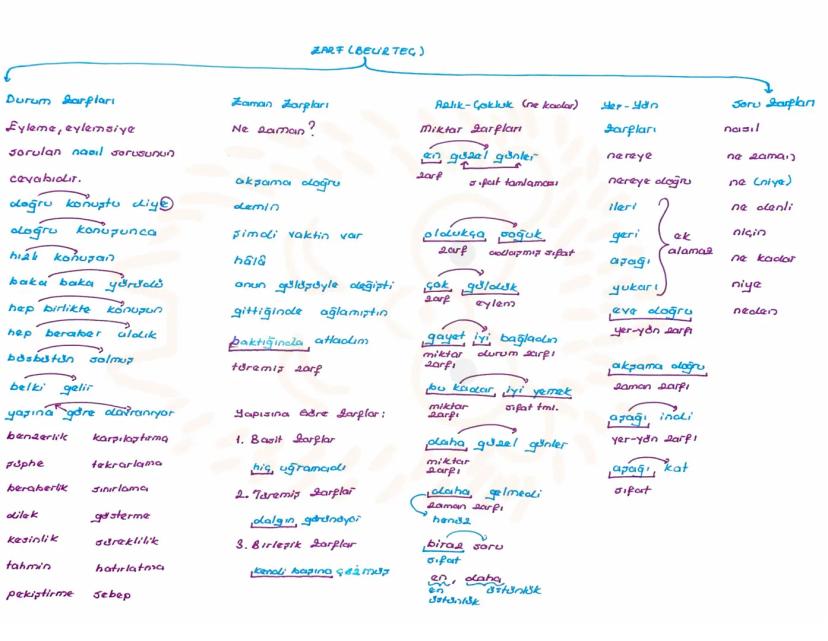 ZARF (BELİRTEÇ)
Durum Zarfları
Eyleme, eylemsiye
sorulan nasıl sorusunun
cevabıdır.
doğru konuştu diye
doğru konuşunca
hızlı konuşan
baka baka yürüdü
hep birlikte konuşun
hep beraber
büsbütün solmuş
belki gelir
yaşına göre davranıyor
benzerlik karşılaştırma
şüphe tekrarlama
beraberlik sınırlama
dilek gösterme
kesinlik süreklilik
tahmin hatırlatma
pekiştirme sebep
Zaman Zarfları
Ne zaman?
akşama doğru
demin
şimdi vaktin var
hâlâ
onun gülüşüyle değişti
gittiğinde ağlamıştın
baktığında atladım
türemiş zarf
Yapısına Göre Zarflar:
1. Basit Zarflar
hiç uğramadı
2. Türemiş Zarflar
dalgın görünüyor
3. Birleşik Zarflar
kendi başına çözmüş
Azlık-Çokluk (ne kadar)
Miktar Zarfları
en güzel günler
zarf sıfat tamlaması
oldukça soğuk
zarf adlaşmış sıfat
çok güldük
zarf eylem
gayet iyi bağladın
miktar durum zarfı
zarfı
bu kadar iyi yemek
miktar sıfat tml.
zarfı
daha güzel günler
miktar
zarfı
daha gelmedi
zaman zarfı
henüz
biraz soru
sıfat
en, daha
en üstünlük
üstünlük
Yer-Yön
Zarfları
nereye
nereye doğru
ileri
geri
aşağı
yukarı
ek
alamaz
eve doğru
yer-yön zarfı
akşama doğru
zaman zarfı
aşağı indi
yer-yön zarfı
aşağı kat
sıfat
Soru Zarfları
nasıl
ne zaman
ne (niye)
ne denli
niçin
ne kadar
niye
neden